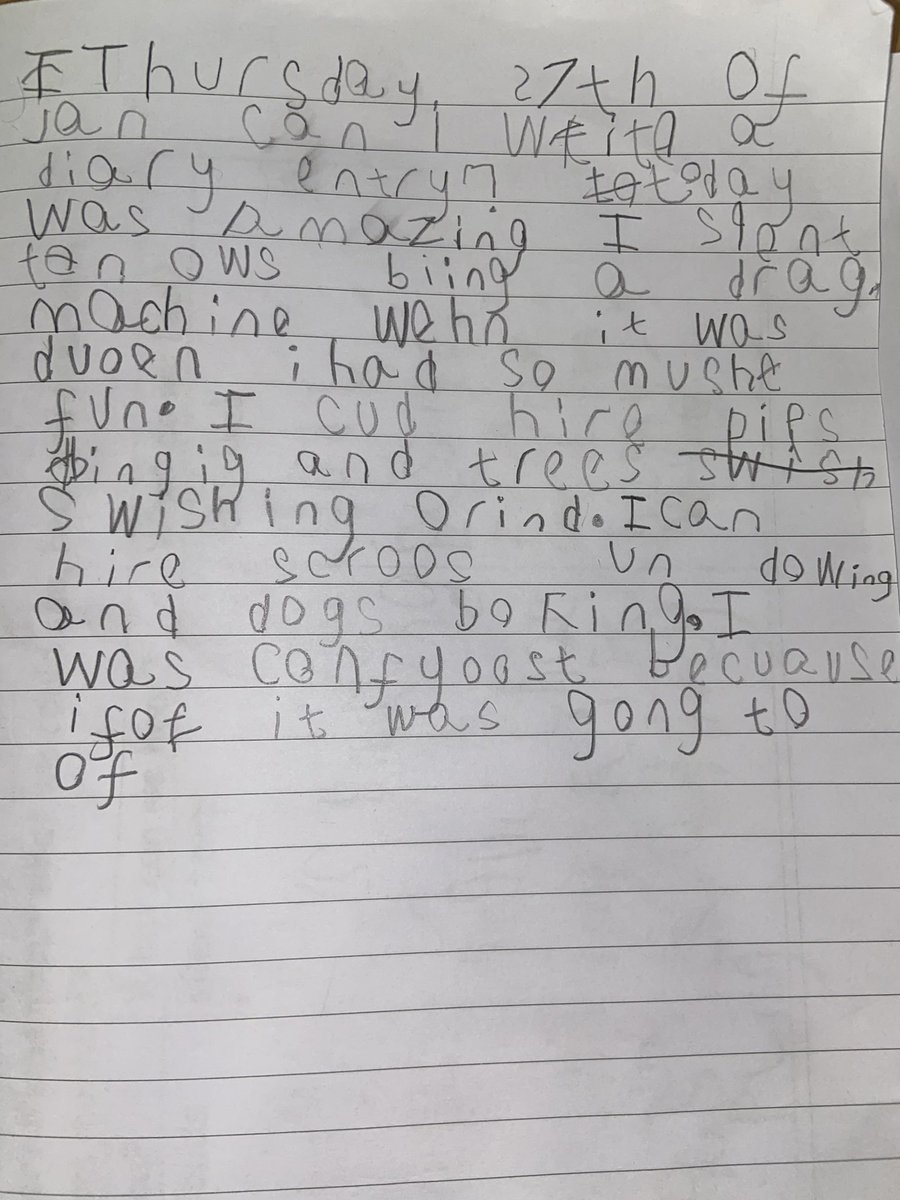 Thursday, 27th Of
jan can I write a
diary entry? today
was amazing I spent
ten ows biing a drag.
machine wehn it was
duoen i had so musht
fun. I cud hire pips
bingig and trees swish
swishing orind. I can
hire scroos un dowing
and dogs boking. I
was confyoost becuause
i fot it was gong to
of